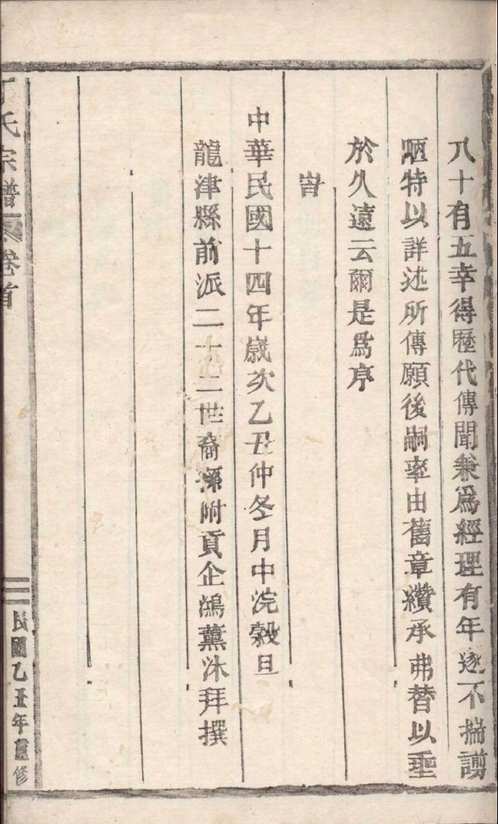 八十有五幸得歷代傳聞兼爲經理有年遂不揣謭
陋特以詳述所傳願後嗣率由舊章纘承弗替以垂
於久遠云爾是爲序
旹
中華民國十四年歲次乙丑仲冬月中浣穀旦
龍津縣前派二十二世裔孫附貢企鴻薰沐拜撰
丁氏宗譜 卷首
民國乙丑年重修